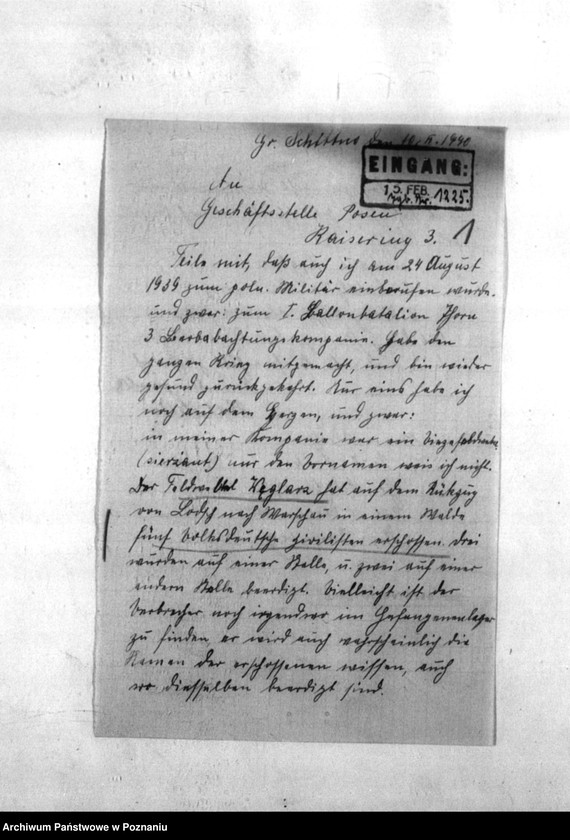 Gr. Schittno den 10. II. 1940
EINGANG:
15. FEB.
Tgb. Nr. 1225.
An
Geschäftsstelle Posen
Kaiserring 3.
1
Teile mit, daß auch ich am 24 August
1939 zum poln. Militär einberufen wurde.
und zwar: zum I. Ballonbatalion Thorn
3 Beobachtungskompanie. Habe den
ganzen Krieg mitgemacht, und bin wieder
gesund zurückgekehrt. Nur eins habe ich
noch auf dem Herzen, und zwar:
in meiner Kompanie war ein
(sierżant) nur den Vornamen weis ich nicht.
Der Feldwebel Węglarz hat auf dem Rükzug
von Lodsch nach Warschau in einem Walde
fünf volksdeutsche zivilisten erschossen. Drei
wurden auf einer Stelle, u. zwei auf einer
andern Stelle beerdigt. Vielleicht ist der
Verbrecher noch irgendwo im Gefangenenlager
zu finden er wird auch wahrscheinlich die
Namen der erschossenen wissen, auch
wo diesselben beerdigt sind.
Archiwum Państwowe w Poznaniu